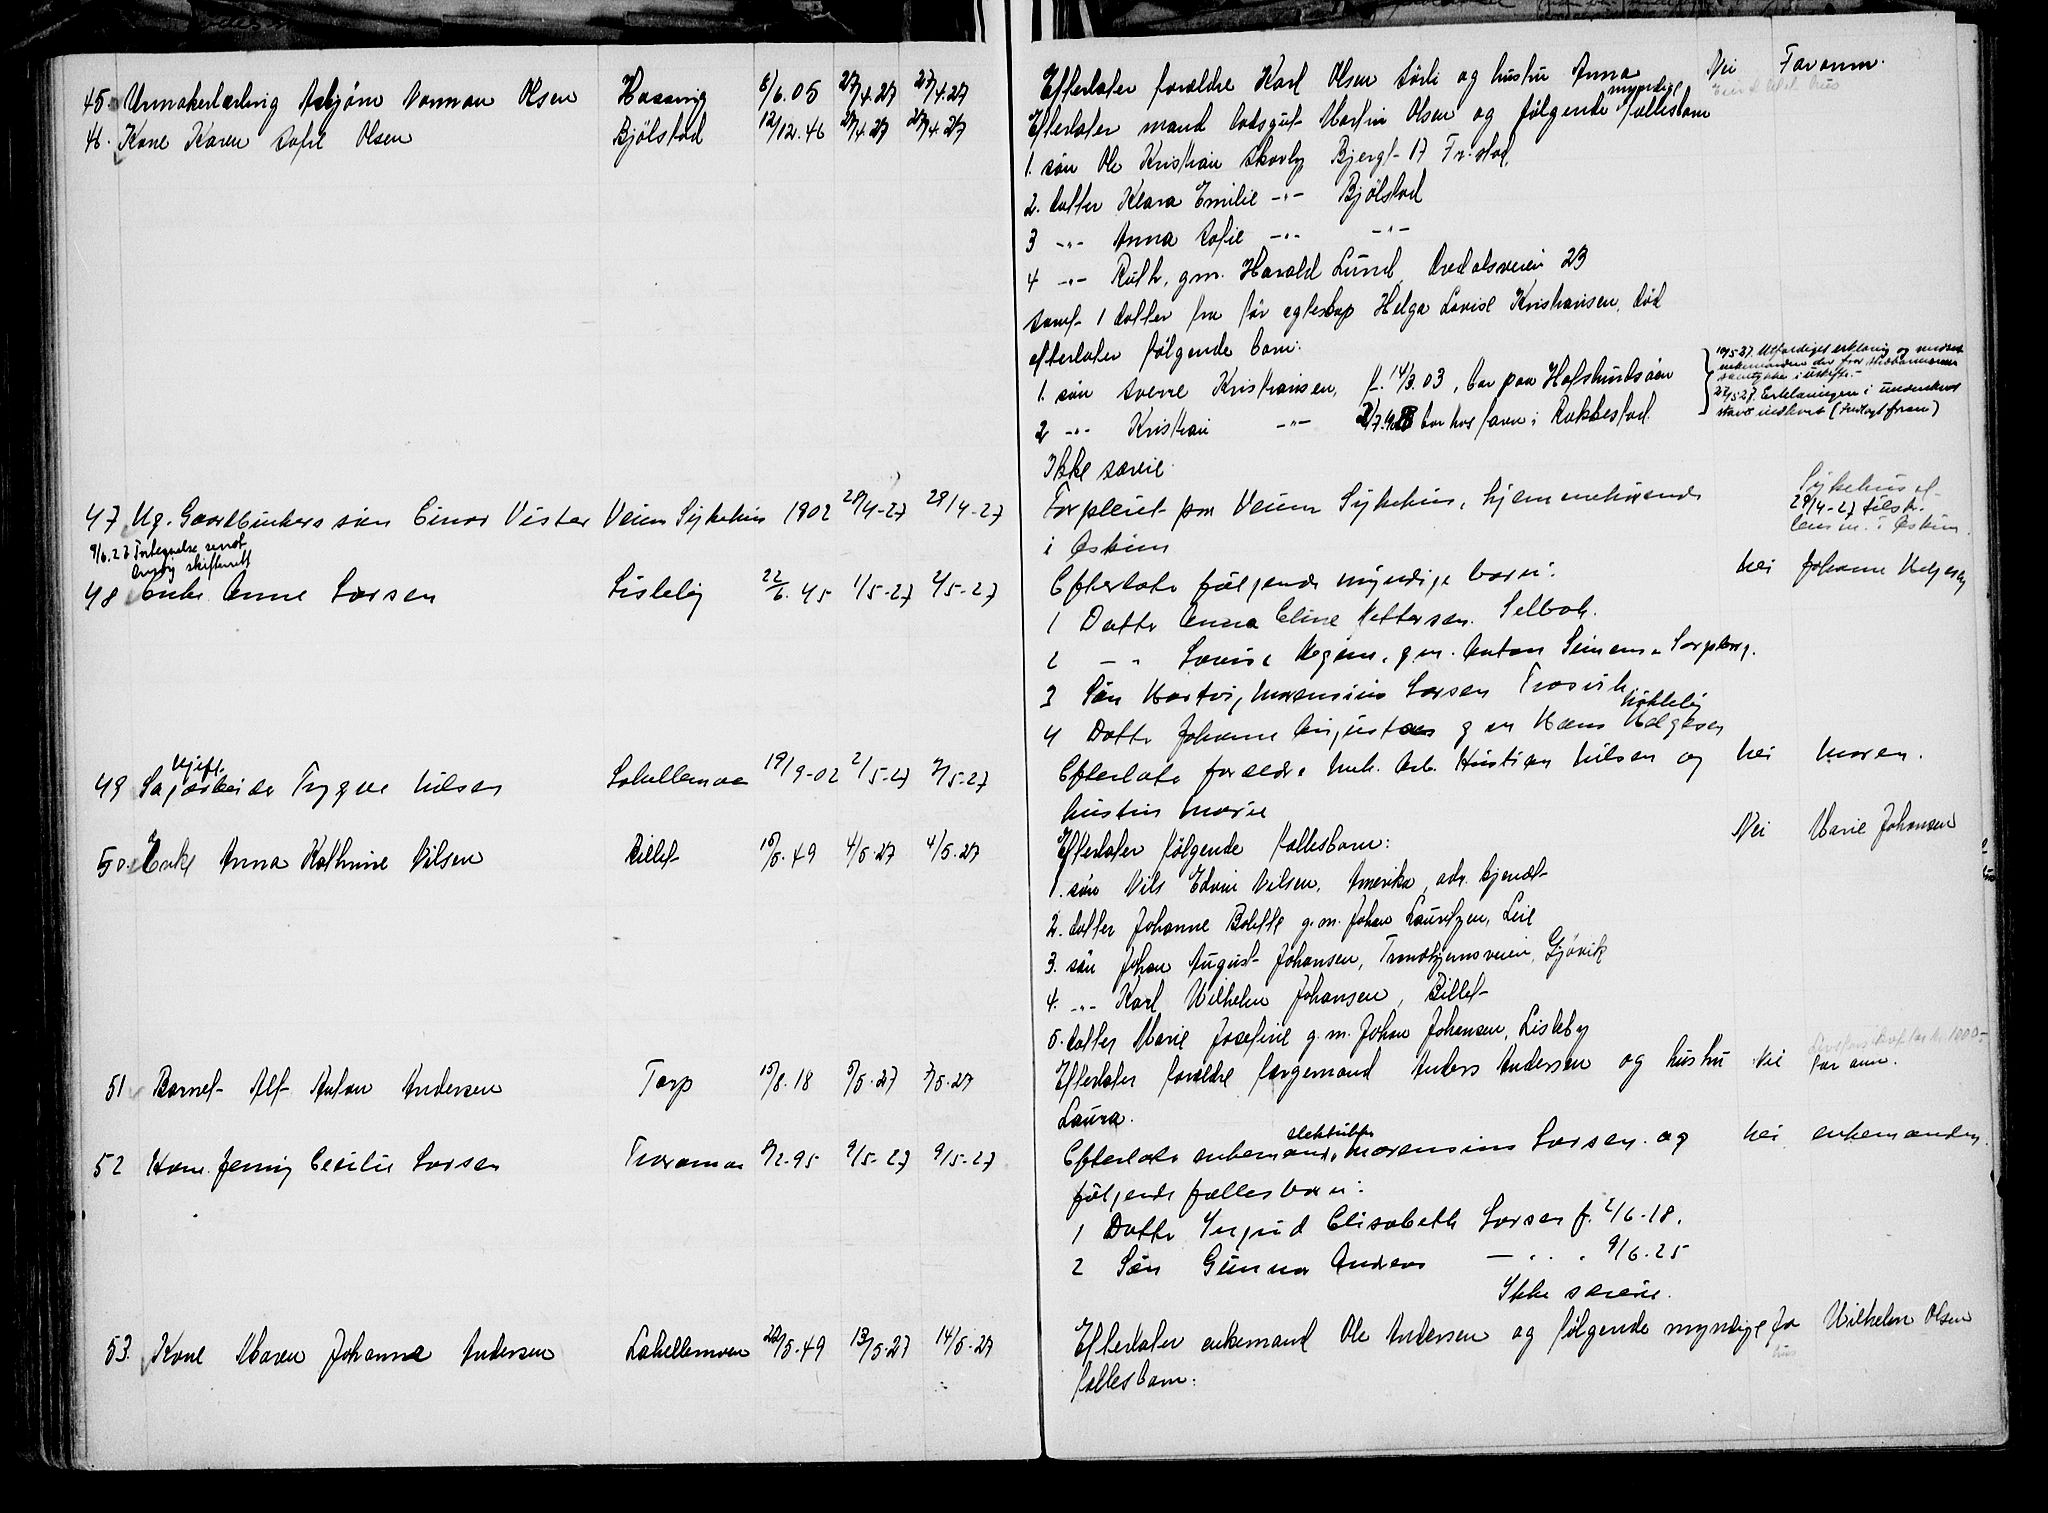 45 Urmakerlærling Asbjørn Norman Olsen Hassing 8/6.05 27/4.27 27/4.27
46. Kone Karen Sofie Olsen Bjölstad 12/12.46 27/4.27 27/4.27
47 Ug. Gaardbrukers søn Einar Vister Veum Sykehus 1902 28/4-27 29/4-27
9/6.27 sendt skifteret
48 Enke Anne Larsen Lisleby 22/6.45 1/5-27 2/5-27
Ugift.
49 Sagarbeider Trygve Nilsen Lahellemoen 19/9-02 2/5-27 2/5-27
50. Enke Anna Kathrine Nilsen Rillet 15/5.49 4/5.27 4/5.27
51 Barnet Alf Anton Andersen Torp 15/8.18 5/5.27 7/5.27
52 Kone Jenny Cecilie Larsen Traramoen 5/2-95 9/5-27 9/5-27
53. Kone Maren Johanne Andersen Lahellemoen 22/5.49 13/5.27 14/5.27
Efterlater forældre Karl Olsen Sørli og hustru Anna Nei Faren
myndige
Efterlater mand Martin Olsen og følgende fællesbarn
1. søn Ole Kristian Skovly Bjergt 17 Fr.stad,
2. datter Klara Emilie -"- Bjölstad
3 -"- Anna Sofie -"- -"-
4 -"- Ruth, gm. Harald Lund, 23
samt 1 datter fra før egteskap Helga Lovise Kristiansen, død
efterlater følgende barn:
1. søn Sverre Kristiansen, f. 14/3.03, bor paa Hafslundsøen
2 -"- Kristian -"- bor hos faren i Rakkestad
10/5 27. Utfærdiget erklæring og
samtykke i uskifte.-
27/5 27. Erklæringen i underskrevet
stand indkom (Indlagt foran)
Ikke særeie.
Forpleiet paa Veum Sykehus, hjemmehørende
i Askim
Sykehuset
29/4-27 tilskr.
lensm. i Askim.
Efterlater følgende myndige barn: Nei Johanne Helgesen
1 Datter Anna Eline Pettersen. Selbak.
2 -"- Lovise gm. Anton Sarpsborg.
3 Søn Martin Marensius Larsen Trosvik
4 Datter Johanne Augusta gm Hans Helgesen
Efterlater forældre Arb. Kristian Nilsen og Nei Moren.
hustru Marie
Efterlater følgende fællesbarn: Nei Marie Johansen
1. søn Nils Edvin Nilsen, Amerika, adr. kjendt
2. datter Johanne Bolette g.m. Johan Lauritzen, Leie
3. søn Johan August Johansen, Trondhjemsveien, Gjøvik
4. -"- Karl Wilhelm Johansen, Rillet
5. datter Marie Josefine g.m. Johan Johansen, Lisleby
Efterlater forældre færgemand Anders Andersen og hustru Nei Faren.
Laura.
Efterlater enkemand, Marensius Larsen og Nei enkemanden.
følgende fællesbarn:
1 Datter Ingrid Elisabeth Larsen f. 2/6-18.
2 Søn Gunnar Andreas - " - 9/6.25
Ikke særeie.
Efterlater enkemand Ole Andersen og følgende myndige Ja Wilhelm Olsen
fællesbarn: